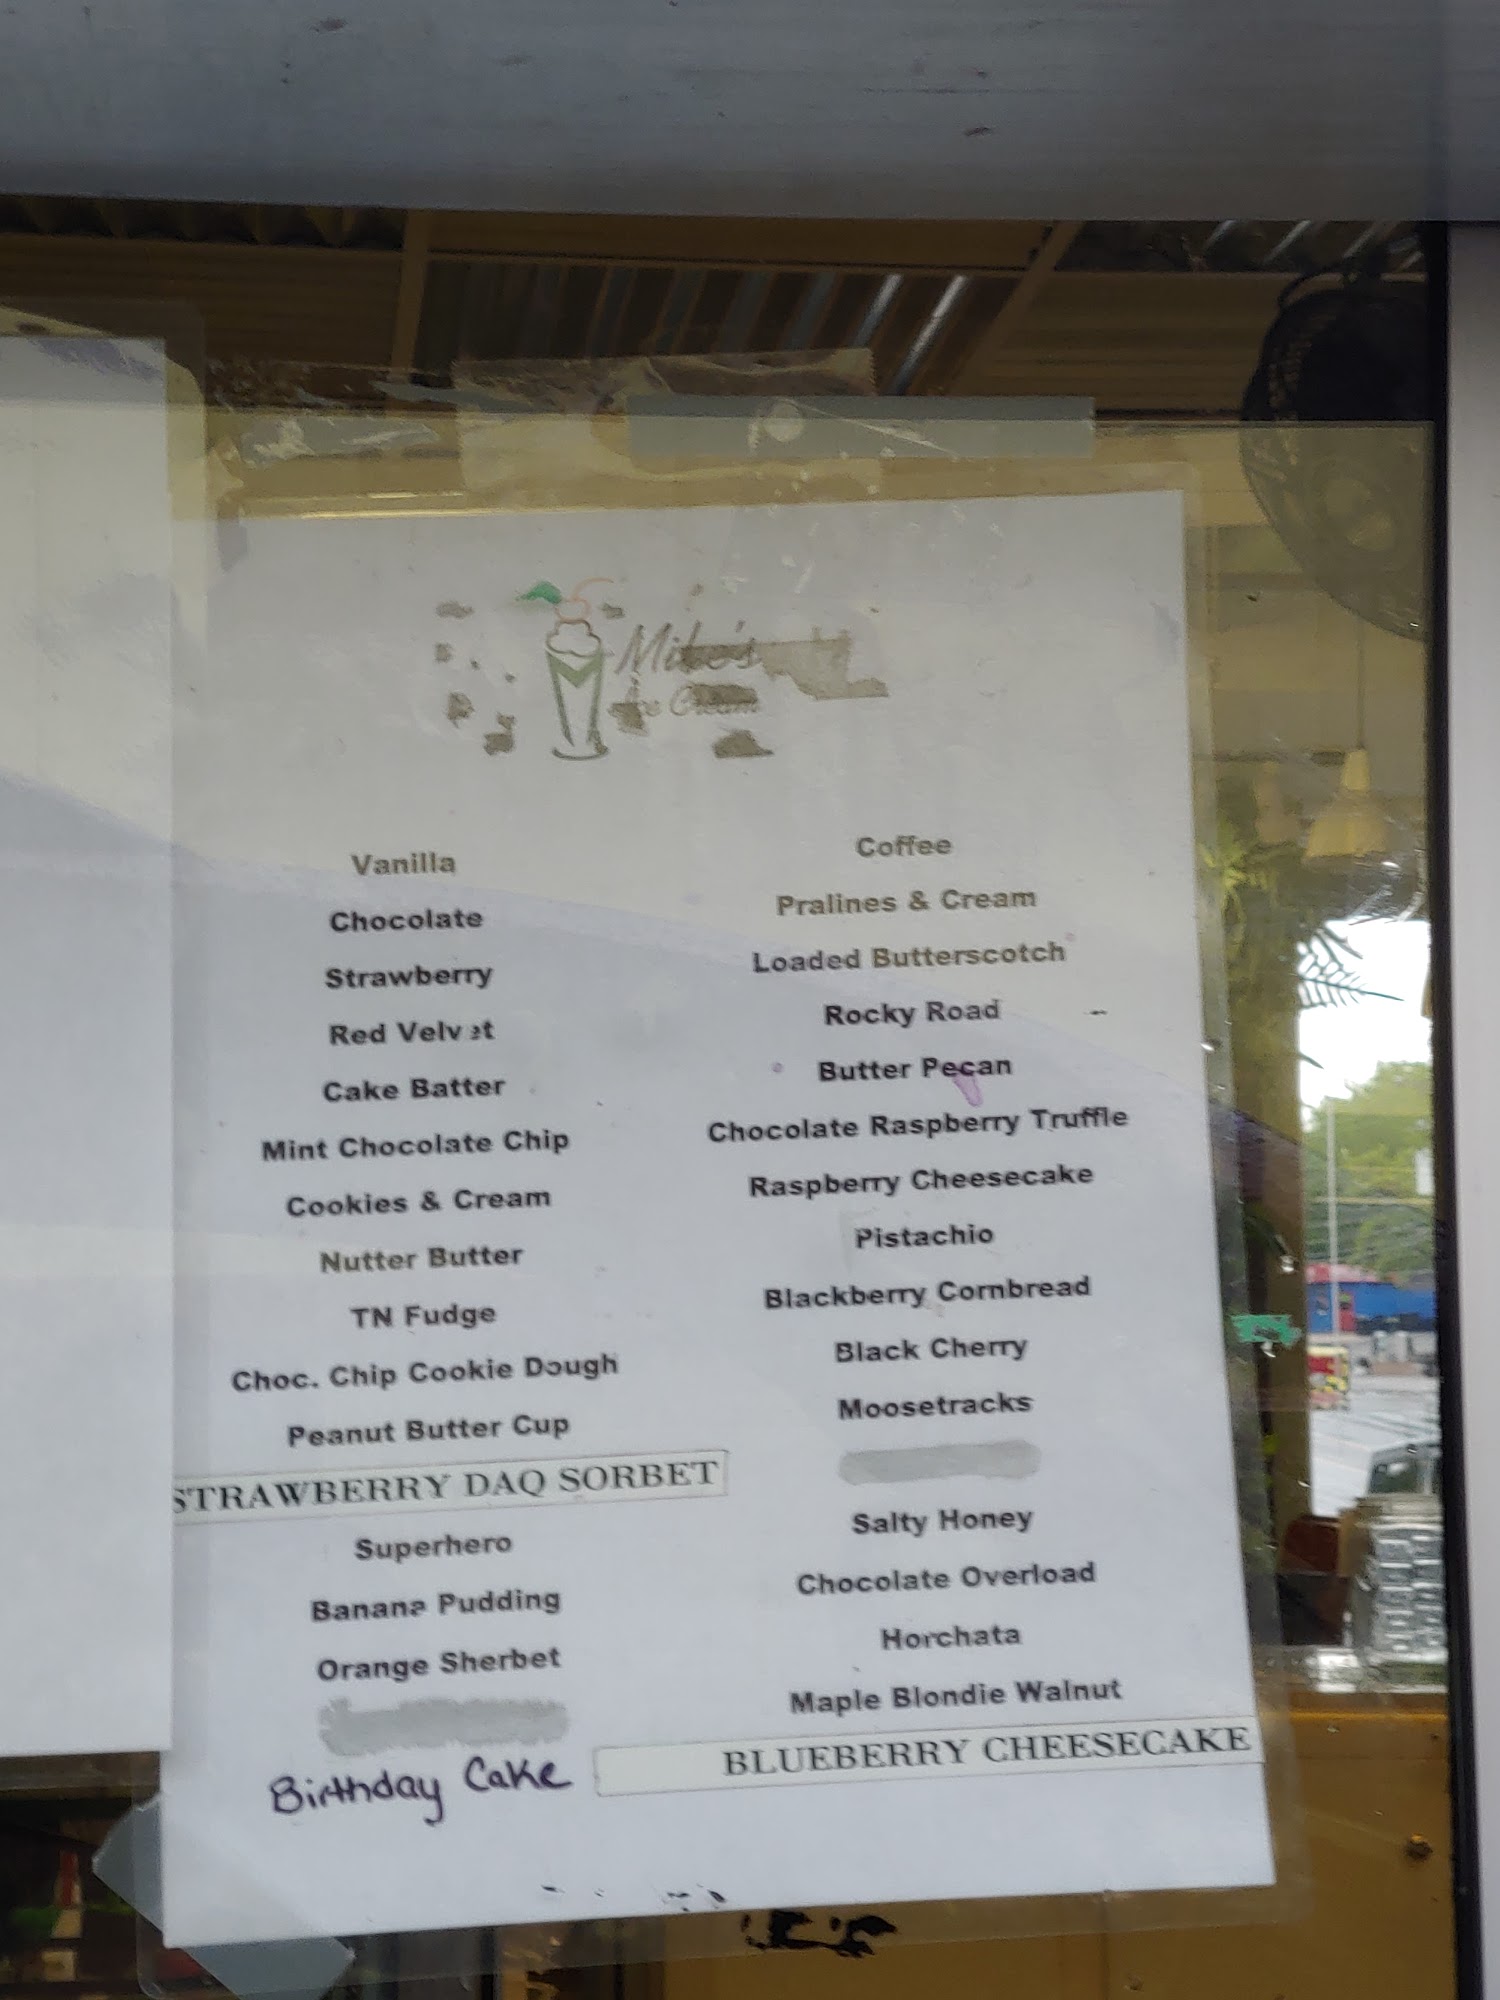 Mike's
Ice Cream
Vanilla
Chocolate
Strawberry
Red Velvet
Cake Batter
Mint Chocolate Chip
Cookies & Cream
Nutter Butter
TN Fudge
Choc. Chip Cookie Dough
Peanut Butter Cup
STRAWBERRY DAQ SORBET
Superhero
Banana Pudding
Orange Sherbet
Birthday Cake
Coffee
Pralines & Cream
Loaded Butterscotch
Rocky Road
Butter Pecan
Chocolate Raspberry Truffle
Raspberry Cheesecake
Pistachio
Blackberry Cornbread
Black Cherry
Moosetracks
Salty Honey
Chocolate Overload
Horchata
Maple Blondie Walnut
BLUEBERRY CHEESECAKE